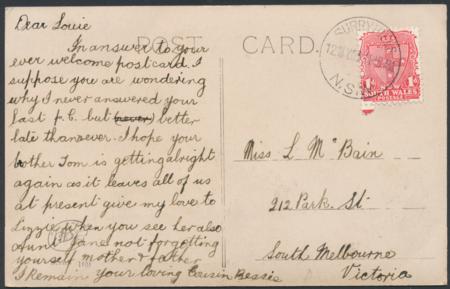 POST CARD.
Dear Louie
In answer to your
ever welcome postcard. I
suppose you are wondering
why I never answered your
last P.C. but (never) better
late thanever. I hope your
bother Tom is getting alright
again as it leaves all of us
at present give my love to
Lizzie when you see her also
Aunt Jane not forgetting
yourself mother & father
I Remain your loving Cousin Bessie
SURRY HILLS
N.S.W
NEW
SOUTH WALES
POSTAGE
Miss L McBain
212 Park. St
South Melbourne
Victoria